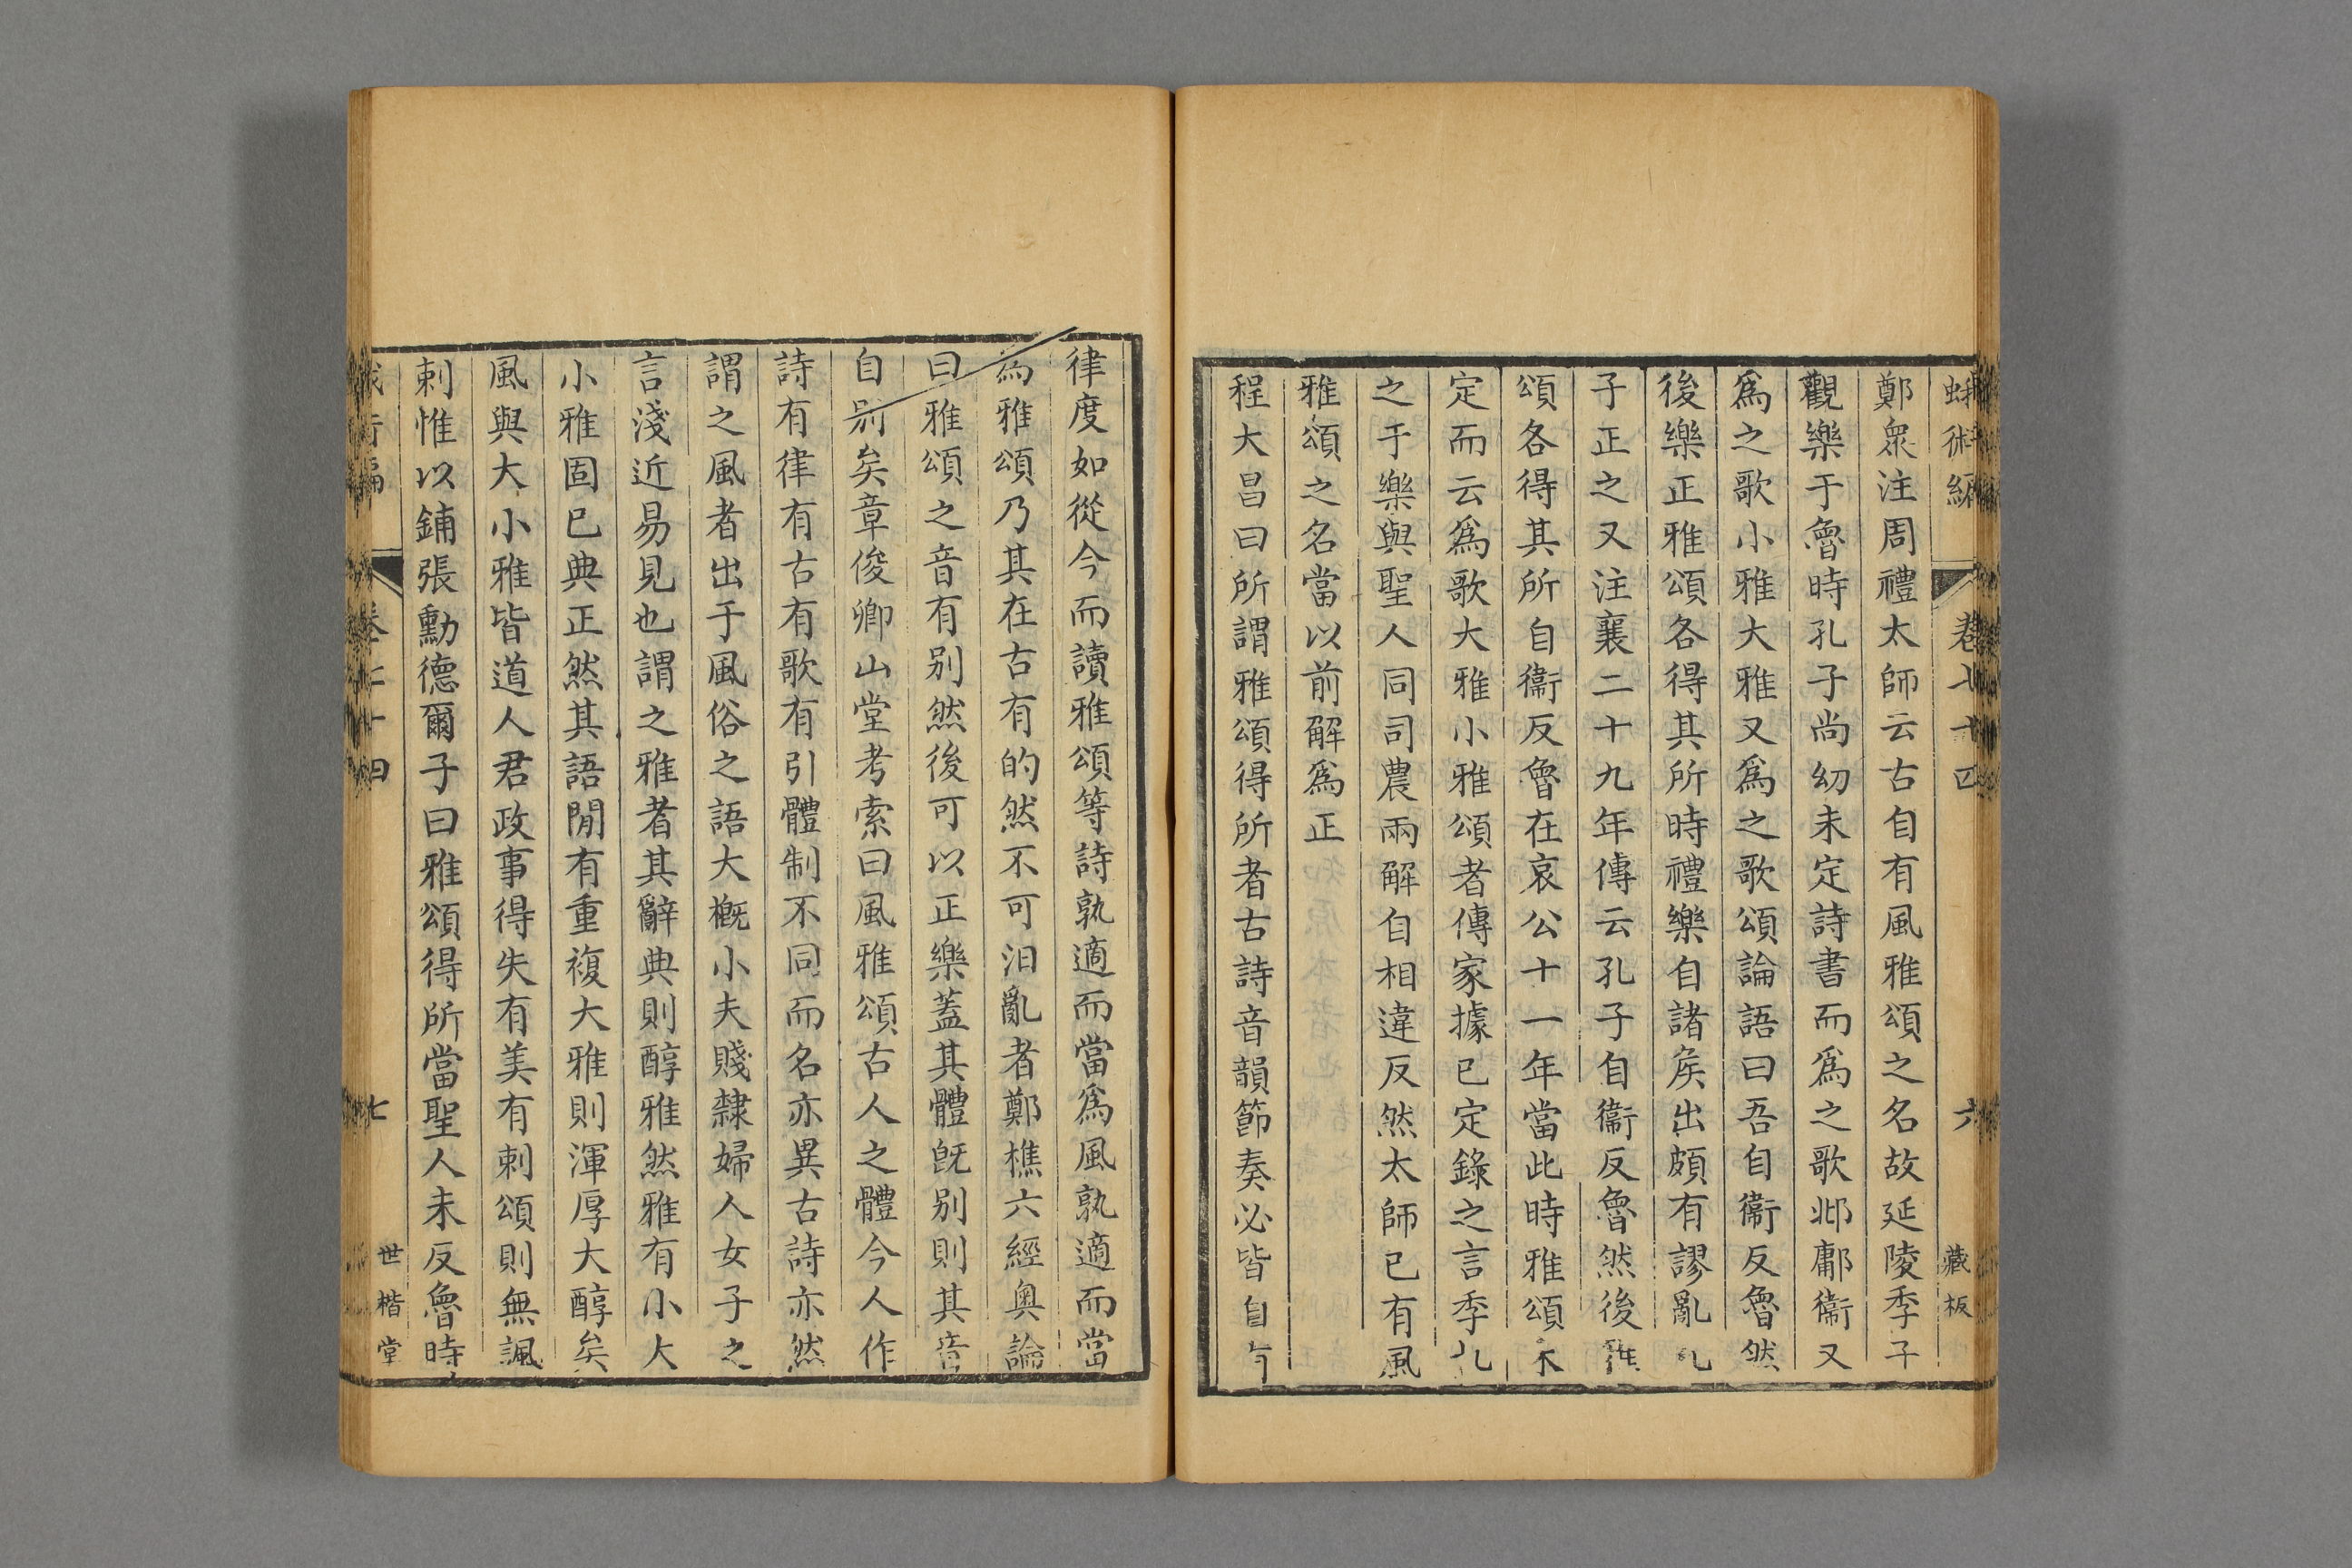 蛾術編 卷七十四 六 藏板
鄭衆注周禮太師云古自有風雅頌之名故延陵季子
觀樂于魯時孔子尚幼未定詩書而爲之歌邶鄘衞又
爲之歌小雅大雅又爲之歌頌論語曰吾自衞反魯然
後樂正雅頌各得其所時禮樂自諸矦出頗有謬亂孔
子正之又注襄二十九年傳云孔子自衞反魯然後雅
頌各得其所自衞反魯在哀公十一年當此時雅頌未
定而云爲歌大雅小雅頌者傳家據已定錄之言季札
之于樂與聖人同司農兩解自相違反然太師已有風
雅頌之名當以前解爲正
程大昌曰所謂雅頌得所者古詩音韻節奏必皆自有
律度如從今而讀雅頌等詩孰適而當爲風孰適而當
爲雅頌乃其在古有的然不可汨亂者鄭樵六經奧論
曰雅頌之音有别然後可以正樂蓋其體旣别則其音
自别矣章俊卿山堂考索曰風雅頌古人之體今人作
詩有律有古有歌有引體制不同而名亦異古詩亦然
謂之風者出于風俗之語大槪小夫賤隸婦人女子之
言淺近易見也謂之雅者其辭典則醇雅然雅有小大
小雅固已典正然其語閒有重複大雅則渾厚大醇矣
風與大小雅皆道人君政事得失有美有刺頌則無諷
刺惟以鋪張勳德爾子曰雅頌得所當聖人未反魯時
七 世楷堂